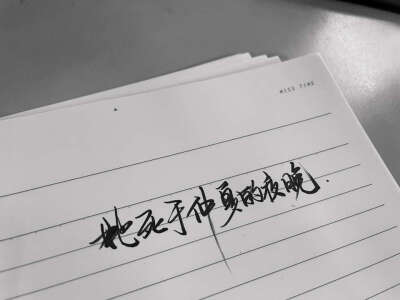 MISS TIME
她死于仲夏的夜晚.